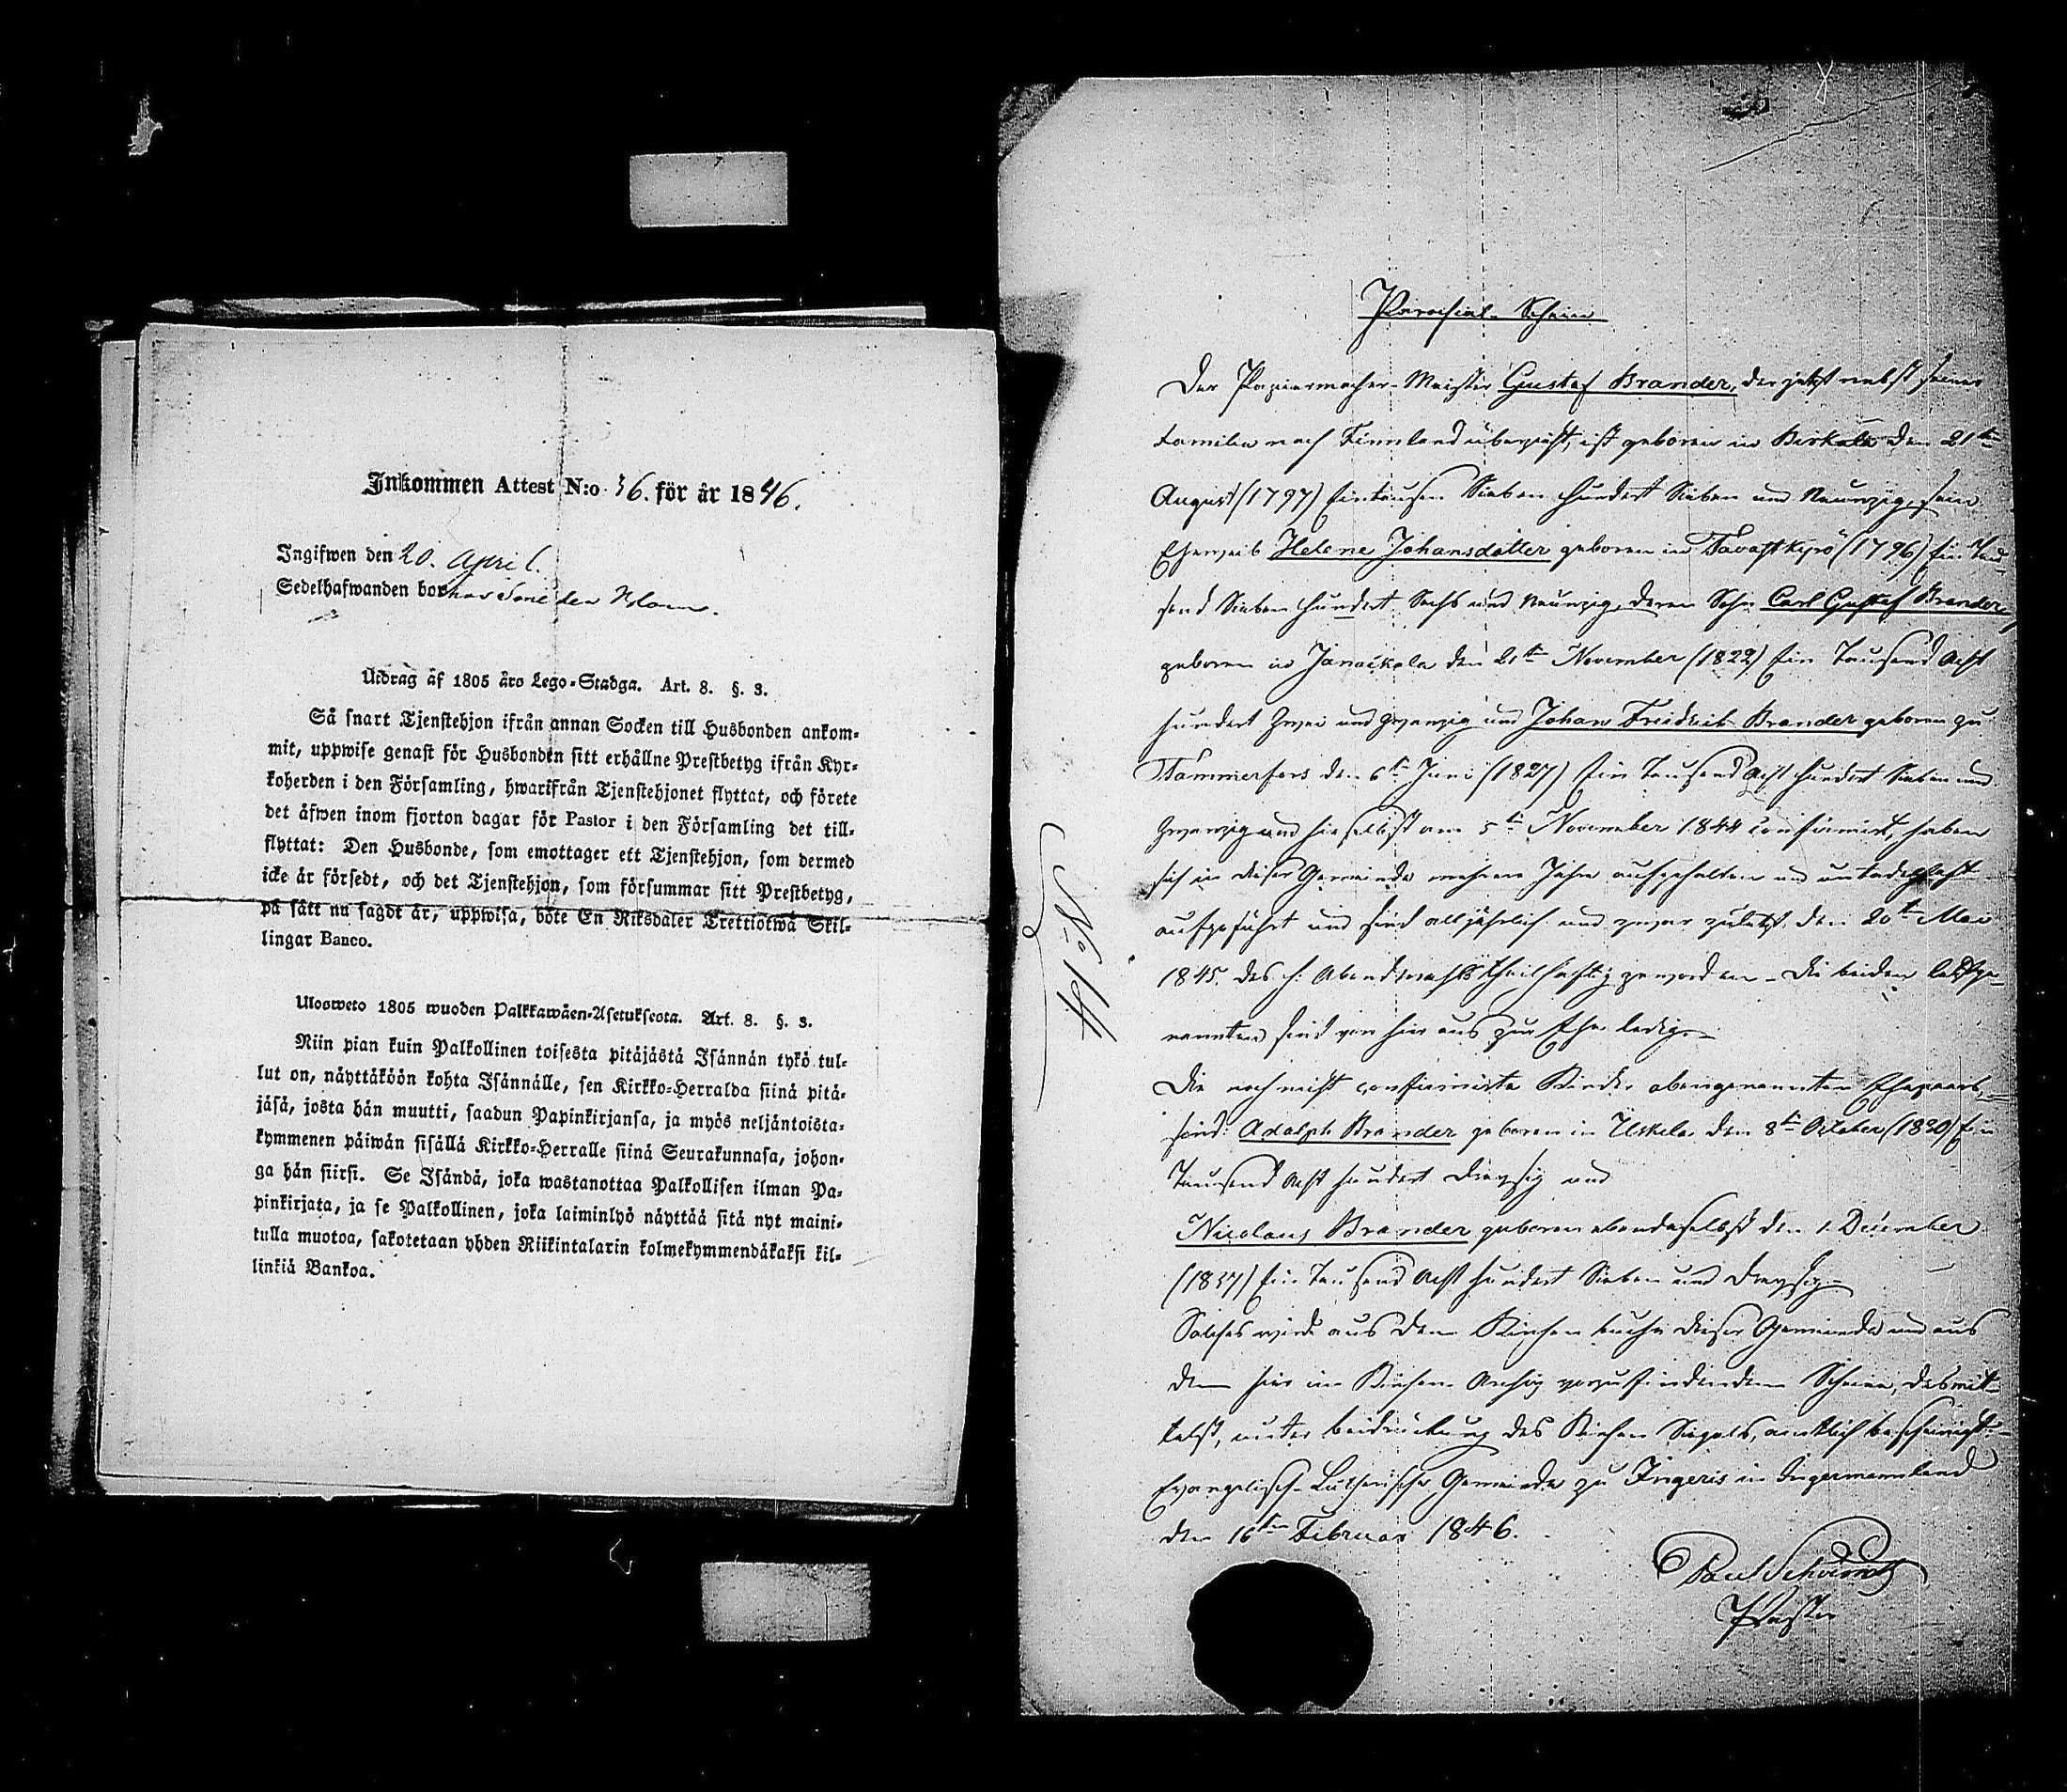 Inkommen Attest N:o 36. för år 1846.
Ingifwen den 20. April.
Sedelhafwanden bor hos
Utdrag af 1805 års Lego-Stadga. Art. 8. §. 3.
Så snart Tjenstehjon ifrån annan Socken till Husbonden ankom-
mit, uppwise genast för Husbonden sitt erhållne Prestbetyg ifrån Kyr-
koherden i den Församling, hwarifrån Tjenstehjonet flyttat, och förete
det äfwen inom fjorton dagar för Pastor i den Församling det till-
flyttat: Den Husbonde, som emottager ett Tjenstehjon, som dermed
icke är försedt, och det Tjenstehjon, som försummar sitt Prestbetyg,
på sätt nu sagdt är, uppwisa, böte En Riksdaler Trettiotwå Skil-
lingar Banco.
Ulosweto 1805 wuoden Palkkawäen-Asetuksesta. Art. 8. §. 3.
Niin pian kuin Palkollinen toisesta pitäjästä Isännän tykö tul-
lut on, näyttäköön kohta Isännälle, sen Kirkko-Herralda siinä pitä-
jäsä, josta hän muutti, saadun Papinkirjansa, ja myös neljäntoista-
kymmenen päiwän sisällä Kirkko-Herralle siinä Seurakunnasa, johon-
ga hän siirsi. Se Isändä, joka wastanottaa Palkollisen ilman Pa-
pinkirjata, ja se Palkollinen, joka laiminlyö näyttää sitä nyt maini-
tulla muotoa, sakotetaan yhden Riikintalarin kolmekymmendäkaksi kil-
linkiä Bankoa.
No 14
Parochial-Schein
Der Papiermacher-Meister Gustaf Brander, der jetzt nebst seiner
Familie nach Finnland überzieht, ist geboren in Birkala den 21ten
August (1797) Eintausen Sieben Hundert Sieben und Neunzig, sein
Eheweib Helene Johansdotter geboren in Tavastkyrö (1796) Ein Tau-
send Sieben Hundert Sechs und Neunzig, deren Sohn Carl Gustaf Brander,
geboren in Janackala den 21ten November (1822) Ein Tausend Acht
Hundert Zwei und Zwanzig und Johan Freidrich Brander geboren zu
Tammerfors den 6ten Juni (1827) Ein Tausend Acht Hundert Sieben und
Zwanzig und hieselbst am 5ten November 1844 confirmirt, haben
sich in dieser Gemeinde mehrere Jahre aufgehalten und untadelhaft
aufgeführt und sind alljährlich und zwar zuletzt den 20ten Mai
1845. des h. Abendmahls theilhaftig geworden - Die beiden letztge-
nannten sind von hier aus zur Ehe ledig. -
Die noch nicht confirmirte Kinder obengenannten Ehepaars,
sind: Adolph Brander geboren in Uskela den 8ten October (1830) Ein
Tausend Acht Hundert Dreyssig und
Nicolaus Brander geboren ebendaselbst den 1. December
(1837) Ein Tausend Acht Hundert Sieben und Dreyssig -
Solches wird aus dem Kirchenbuche dieser Gemeinde und aus
dem hier im Kirchen Archiv vorzufindenden Scheine, desmit-
telst, unter Beidrückung des Kirchen Siegels, amtlich bescheinigt. -
Evangelisch-Lutherische Gemeinde zu Ingeris in Ingermannland
den 16ten Februar 1846.
Paul
Pastor